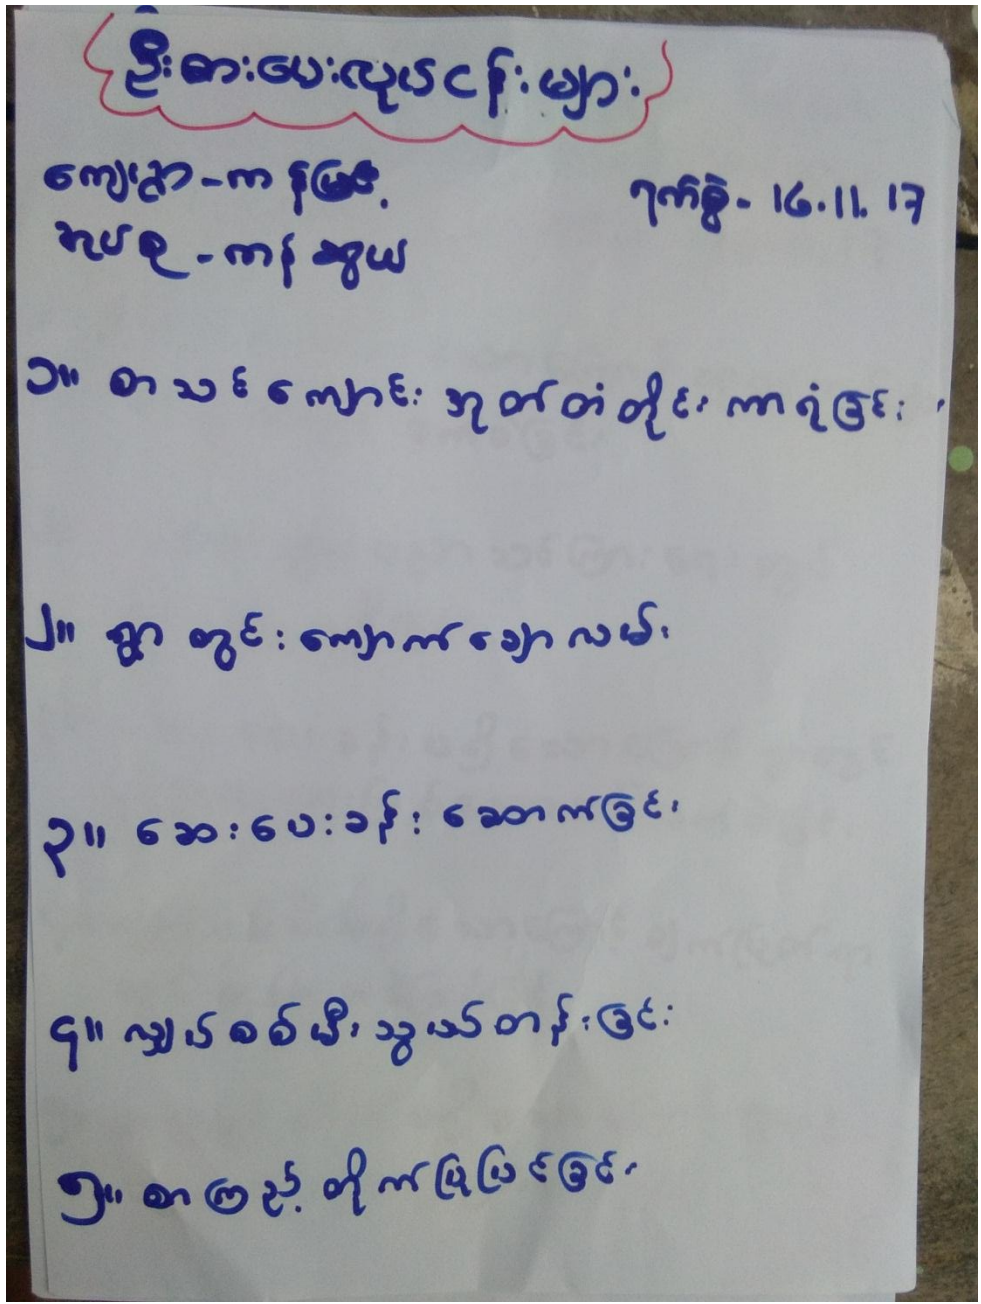 ဦးစားပေးလုပ်ငန်းများ
ကျေးရွာ-ကန်မြင့်
ရက်စွဲ- 16.11.17
အုပ်စု-ကန်ဆွယ်
၁။ စာသင်ကျောင်း အုတ်တံတိုင်း ကာရံခြင်း
၂။ ရွာတွင်း ကျောက်ချောလမ်း
၃။ ဆေးပေးခန်း ဆောက်ခြင်း
၄။ လျှပ်စစ်မီး သွယ်တန်းခြင်း
၅။ စာကြည့်တိုက်ပြုပြင်ခြင်း